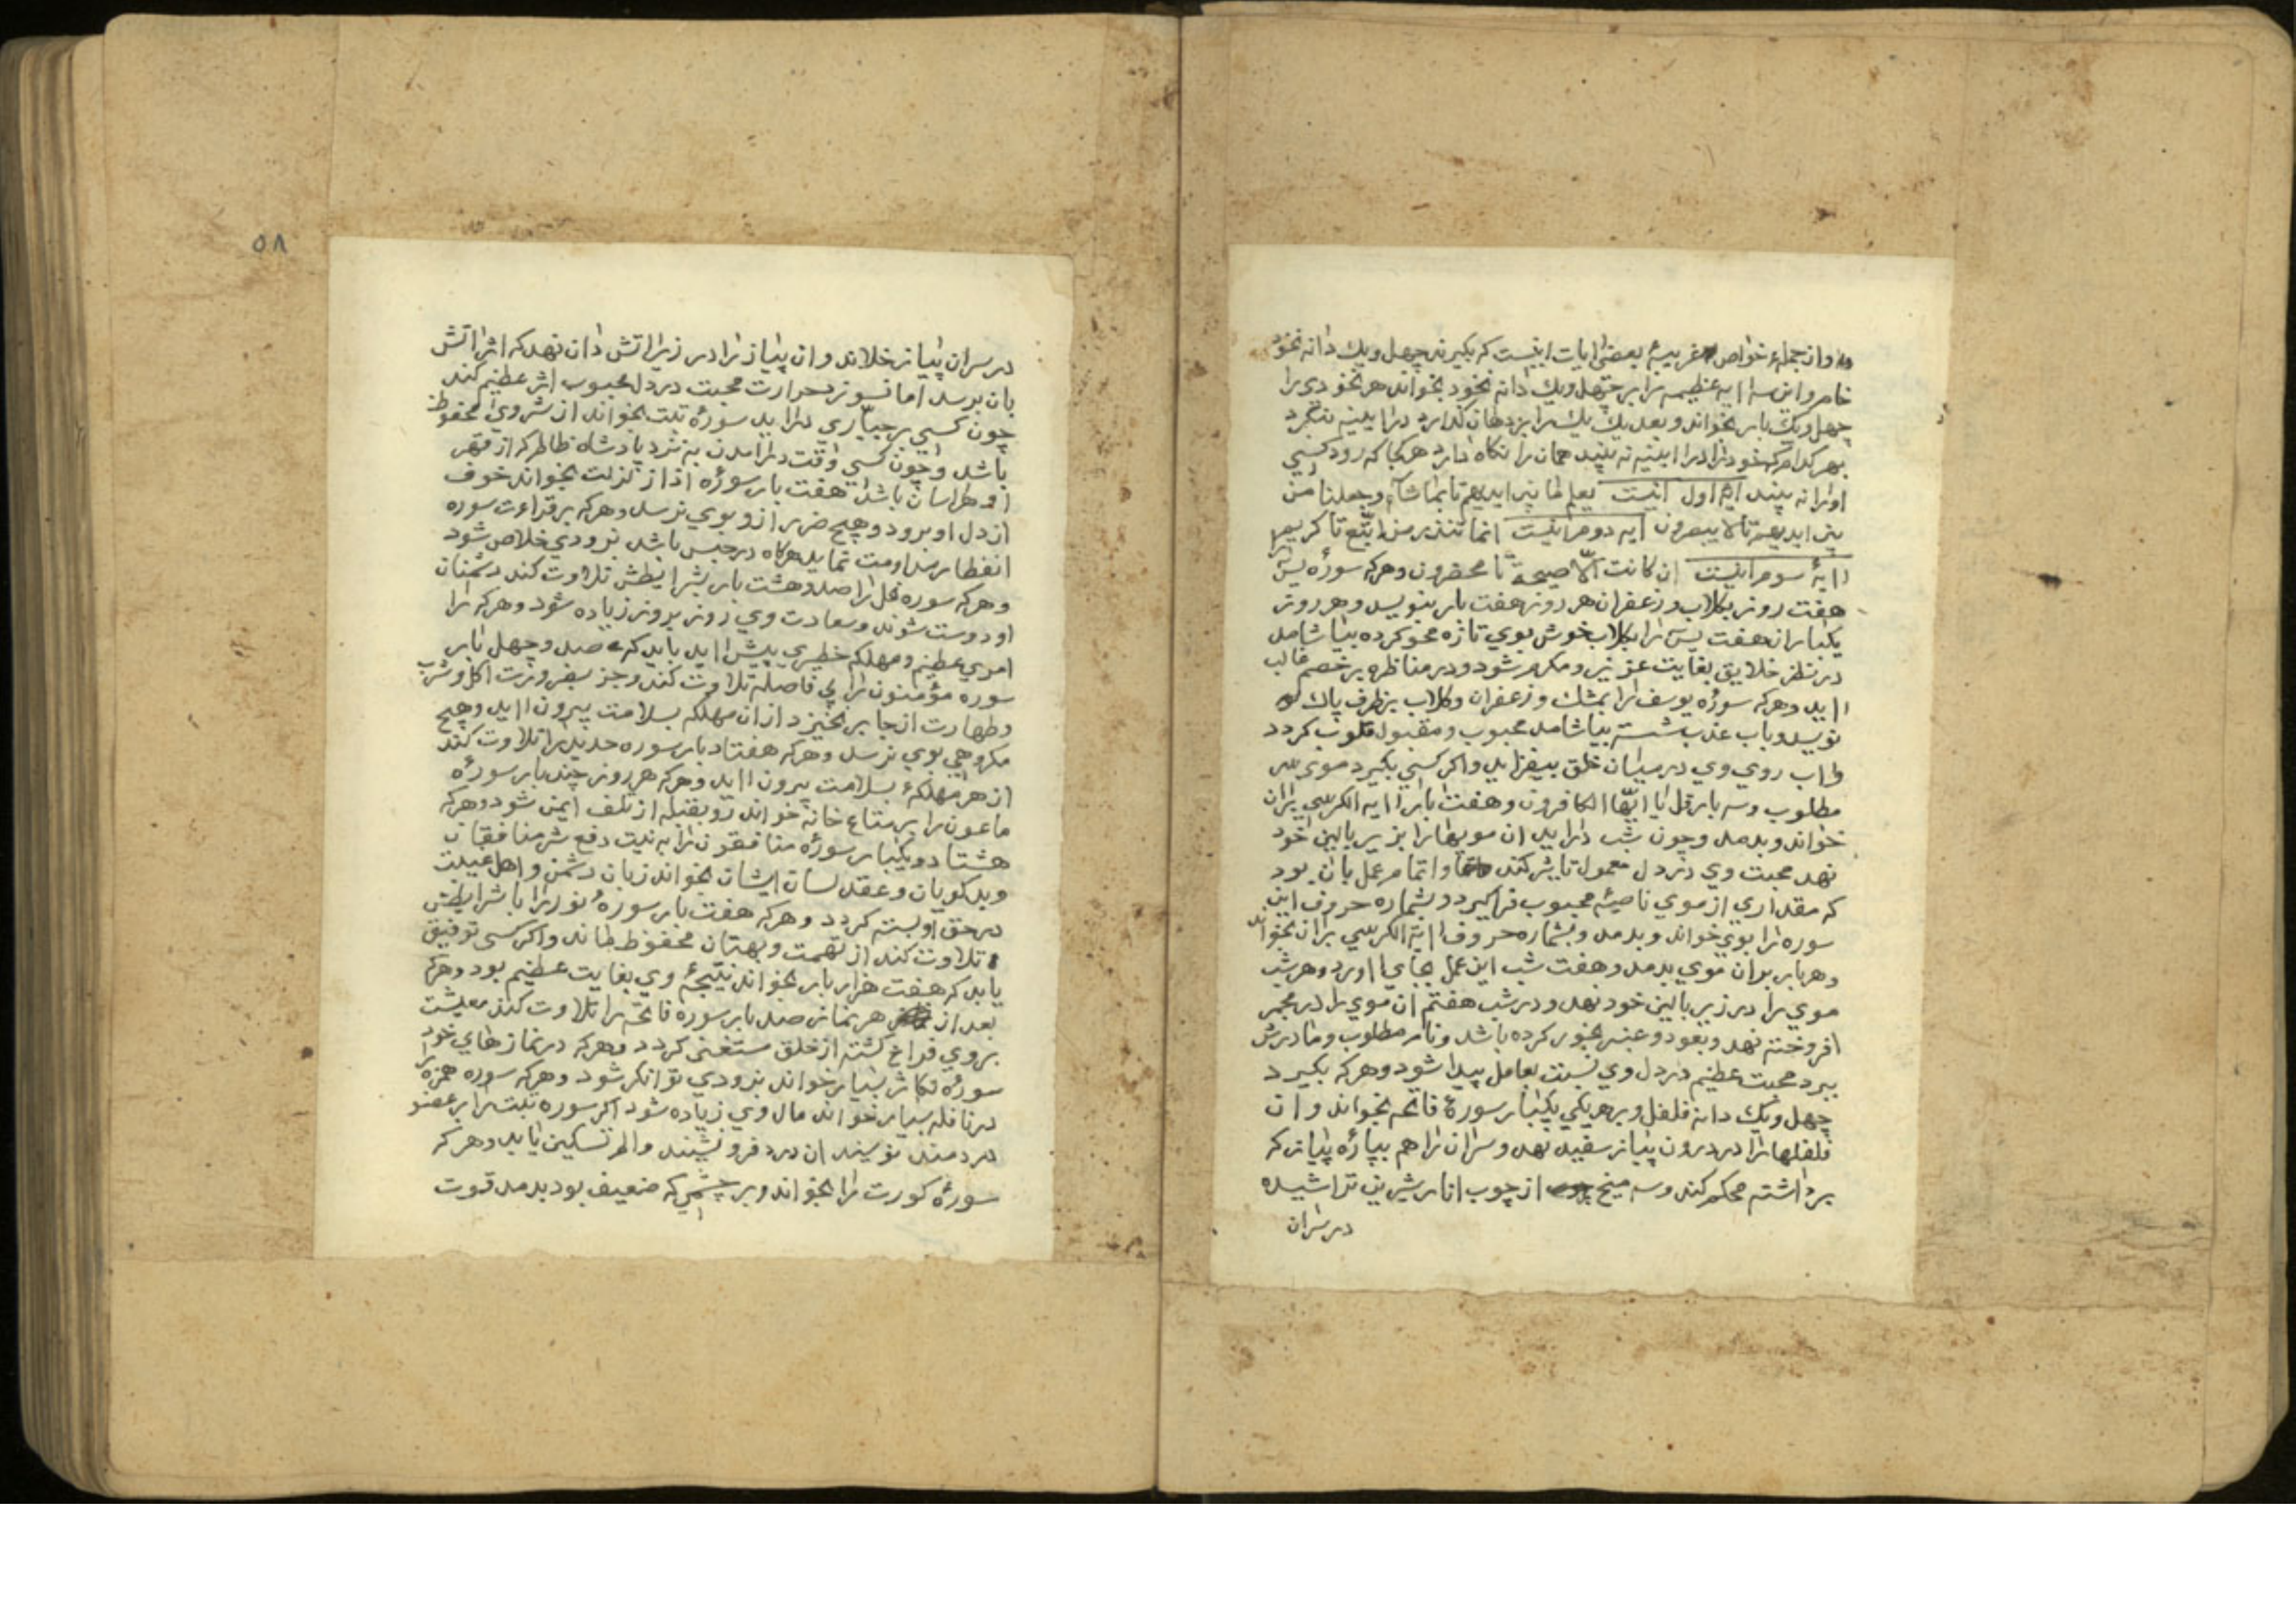 وان جمله خواص غریبهٔ بعضی ایات اینست که بکیرند چهل ویك دانه نخود
خام واین سه ایه عظیمه را بر چهل ویك دانه نخود بخواند هر نخودی را
چهل ویك بار بخواند وبعد یك یك را بر دهان کذارد در ایینه بنکرد
بهر کدام که خود را در ایینه نه بیند همان را نکاه دارد هر کجا که رود کسی
اورا نه بیند ایه اول اینست یعلم ما بین ایدیهم تا بما شاء وجعلنا من
بین ایدیهم تا لا یبصرون ایه دوم اینست انما تنذر من اتبع تا کریم
ایهٔ سوم اینست ان کانت الا صیحة تا محضرون وهر که سورهٔ یس
هفت روز بکلاب وزعفران هر روز هفت بار بنویسد وهر روز
یکبار ان هفت یس را بکلاب خوش بوی تازه محو کرده بیاشامد
در نظر خلایق بغایت عزیز ومکرم شود ودر مناظره بر خصم غالب
اید وهر که سورهٔ یوسف را بمشك وزعفران وکلاب بر ظرف پاك
نویسد وباب عذب شسته بیاشامد محبوب ومقبول قلوب کردد
واب روی وی در میان خلق بیفزاید واکر کسی بکیرد موی سر
مطلوب وسه بار قل یا ایها الکافرون وهفت بار ایه الکرسی بران
خواند وبدمد وچون شب دراید ان مویهارا بزیر بالین خود
نهد محبت وی در دل معمول تاثیر کند واتمام عمل بان بود
که مقداری از موی ناصیهٔ محبوب فراکیرد وبشماره حروف این
سوره را بوی خواند وبدمد وبشماره حروف ایة الکرسی بران بخواند
وهر بار بران موی بدمد وهفت شب این عمل بجای اورد وهر شب
موی را در زیر بالین خود نهد ودر شب هفتم ان موی را در مجمر
افروخته نهد وبعود وعنبر بخور کرده باشد ونام مطلوب ومادرش
ببرد محبت عظیم در دل وی نسبت بعامل پیدا شود وهر که بکیرد
چهل ویك دانه فلفل وبر هر یکی یکبار سورهٔ فاتحه بخواند وان
فلفلهارا در درون پیاز سفید نهد وسر ان را هم بپارهٔ پیاز که
برداشته محکم کند وسه میخ از چوب انار شیرین تراشیده
در سر ان
٥٨
در سر ان پیاز خلاند وان پیاز را در زیر اتش دان نهد که اثر اتش
بان برسد اما نسوزد حرارت محبت در دل محبوب اثر عظیم کند
چون کسی بر جباری دراید سورهٔ تبت بخواند از شر وی محفوظ
باشد وچون کسی وقت درامدن به نزد پادشاه ظالم که از قهر
او هراسان باشد هفت بار سورهٔ اذا زلزلت بخواند خوف
از دل او برود وهیچ ضرر ازو بوی نرسد وهر که بر قراءت سوره
انفطار مداومت نماید هرکاه در حبس باشد بزودی خلاص شود
وهر که سوره نمل را صد وهشت بار بشرایطش تلاوت کند دشمنان
او دوست شوند وسعادت وی روز بروز زیاده شود وهر که را
امری عظیم ومهلکه خطیری پیش اید باید که صد وچهل بار
سوره مؤمنون را بی فاصله تلاوت کند وجز بضرورت اکل وشرب
وطهارت از جا بر نخیزد از ان مهلکه بسلامت بیرون اید وهیچ
مکروهی بوی نرسد وهر که هفتاد بار سوره حدید را تلاوت کند
از هر مهلکهٔ بسلامت بیرون اید وهر که هر روز چند بار سورهٔ
ماعون را بر متاع خانه خواند رو بقبله از تلف ایمن شود وهر که
هشتاد ویکبار سورهٔ منافقون را به نیت دفع شر منافقان
وبدکویان وعقد لسان ایشان بخواند زبان دشمن واهل غیبت
در حق او بسته کردد وهر که هفت بار سورهٔ نور را با شرایطش
تلاوت کند از تهمت وبهتان محفوظ ماند واکر کسی توفیق
یابد که هفت هزار بار بخواند نتیجهٔ وی بغایت عظیم بود وهر که
بعد از هر نماز صد بار سوره فاتحه را تلاوت کند معیشت
بروی فراخ کشته از خلق مستغنی کردد وهر که در نمازهای خود
سورهٔ تکاثر بسیار خواند بزودی توانکر شود وهر که سوره همزه
در نافله بسیار خواند مال وی زیاده شود اکر سوره تبت را بر عضو
دردمند نویسند ان درد فرو نشیند والم تسکین یابد وهر که
سورهٔ کورت را بخواند وبر چشمی که ضعیف بود بدمد قوت